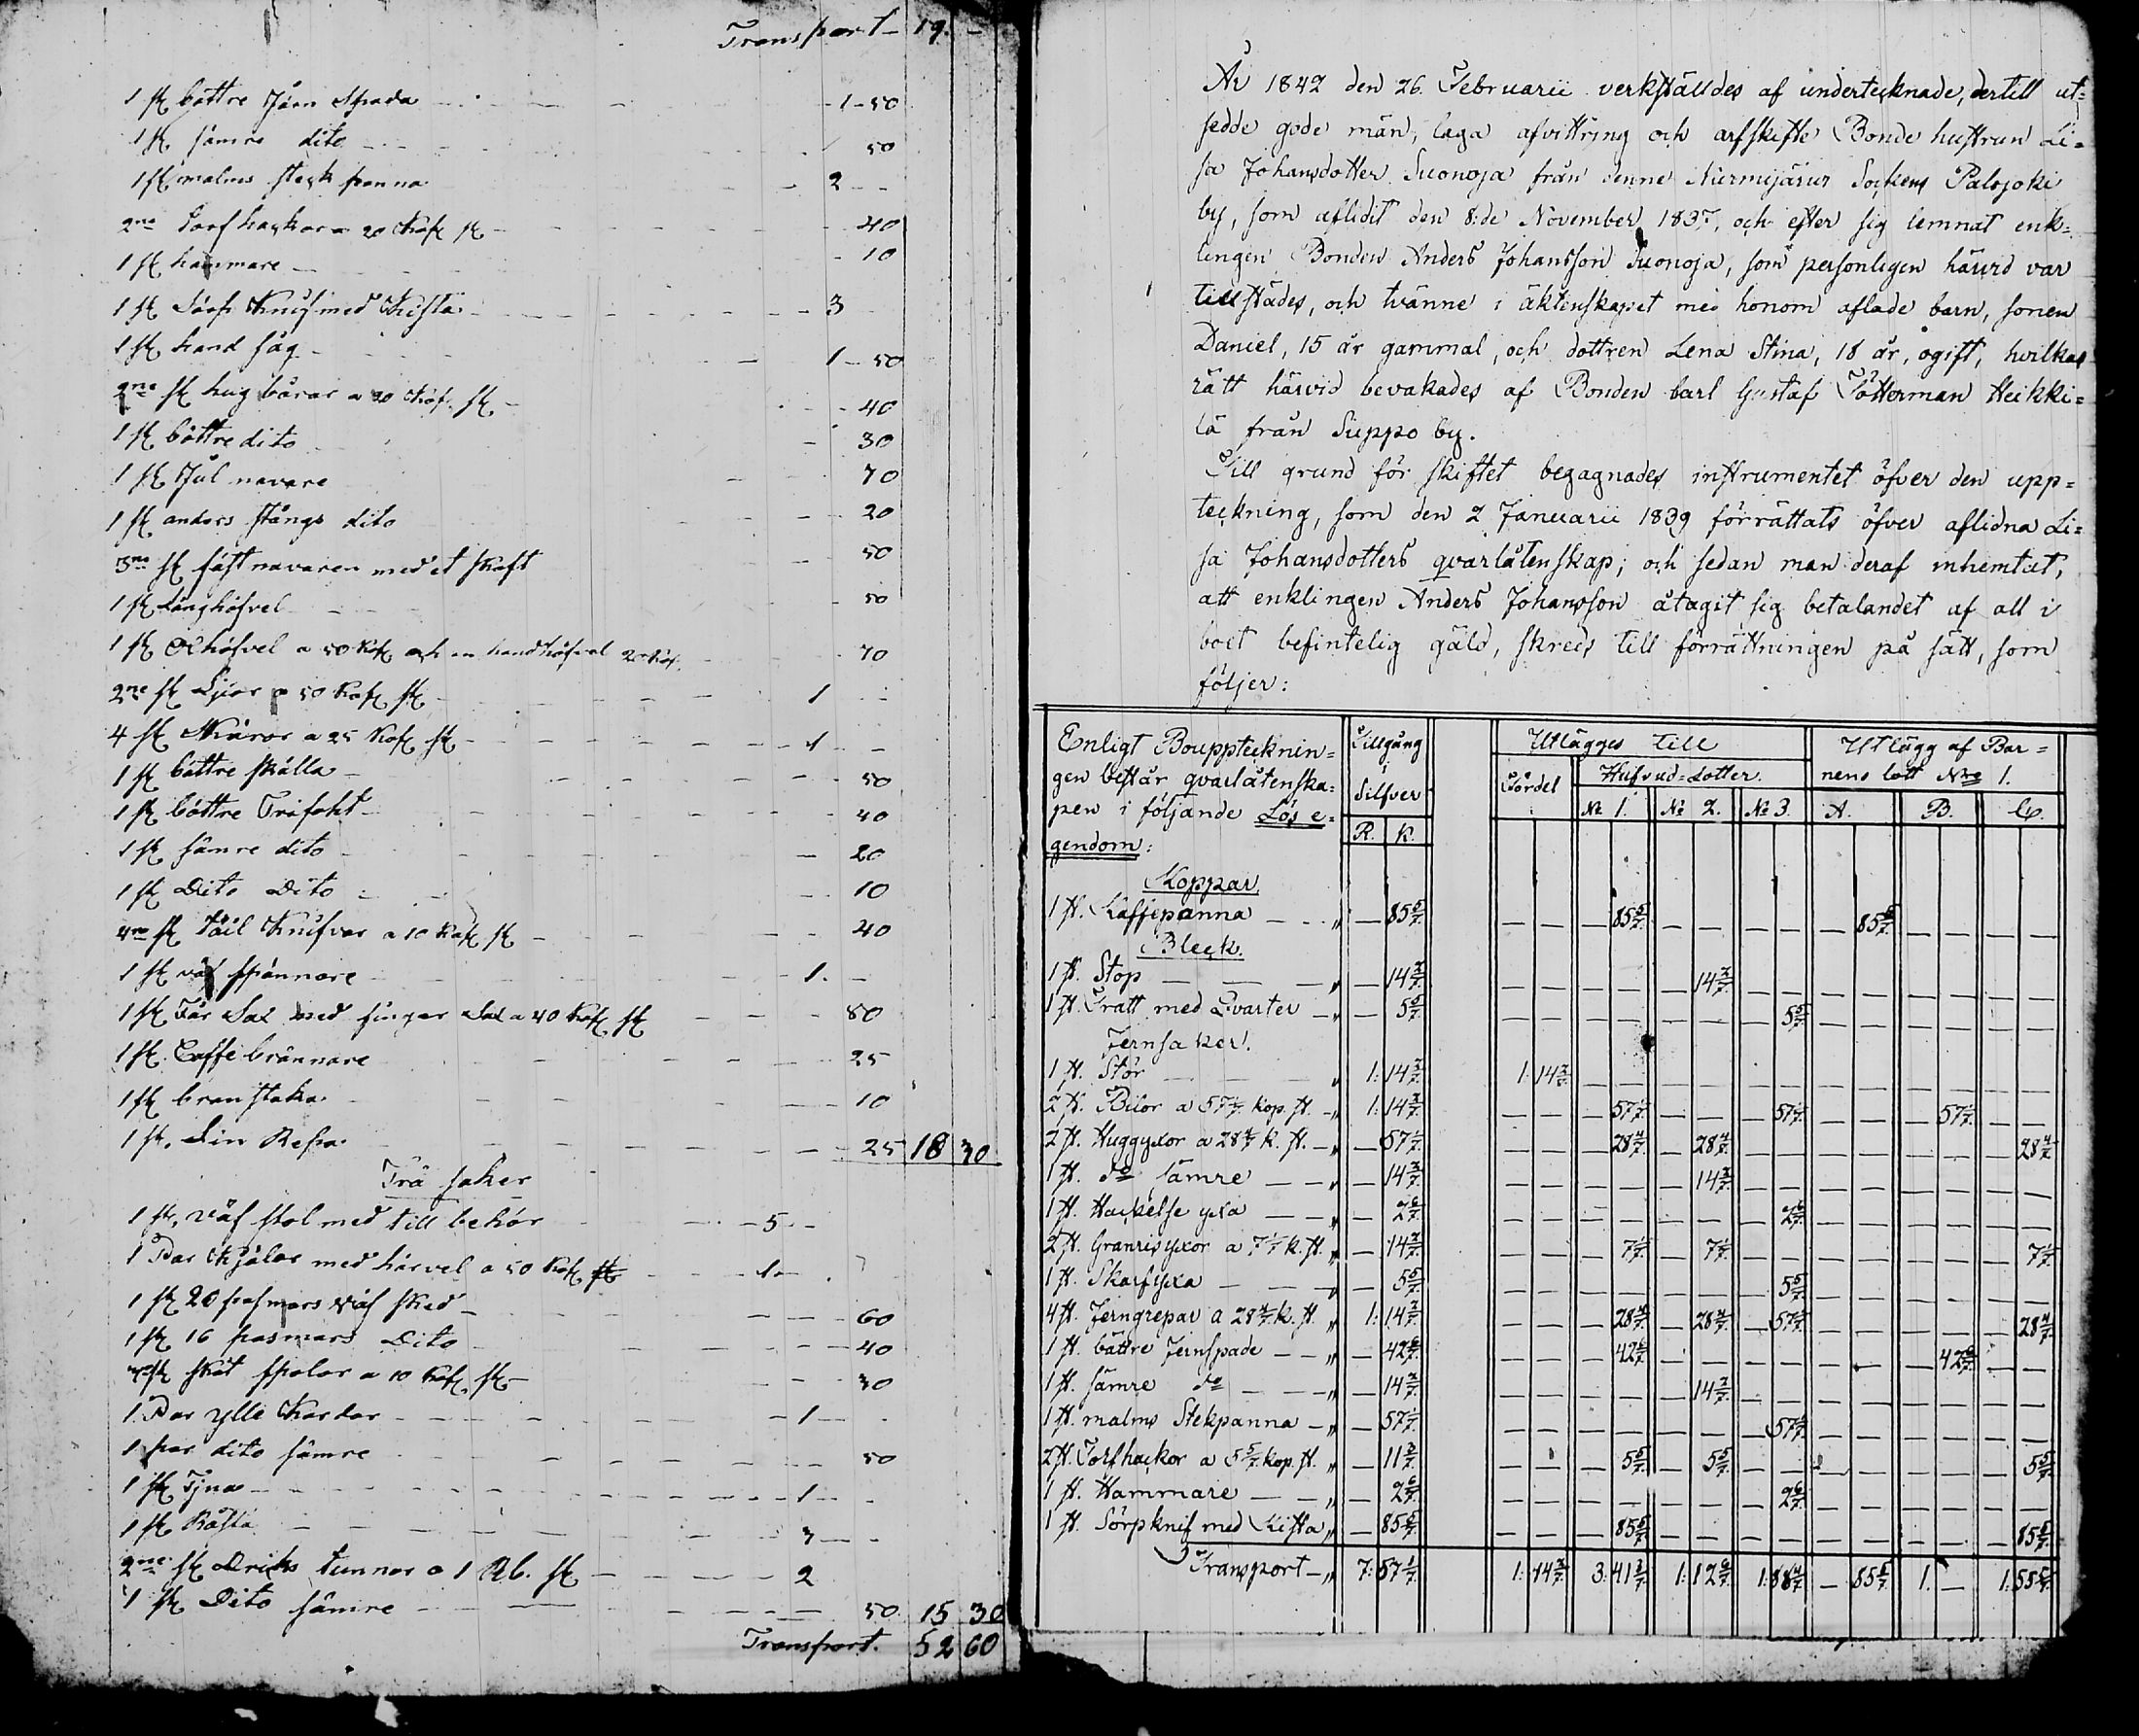 Transport - 19. -
1 st bättre Järn Spada - 1 - 50
1 st sämre dito - 50
1 st malms steck panna - 2 - -
2ne Torf hackor a 20 Kop st - 40
1 st hammare - 10
1 st Sörp Knif med Kista - 3
1 st hand såg - 1 - 50
2ne st hug bårar a 20 Kop. st - 40
1 st bättre dito - 30
1 st Jul navare - 70
1 st anders stångs dito - 20
3ne st fäst navaren med et skaft - 50
1 st Långhöfvel - 50
1 st Ox höfvel a 50 Kop och en handhöfvel 20 Kop. - 70
2ne st Lijor a 50 Kop st - 1 - -
4 st Skäror a 25 Kop st - 1 - -
1 st bättre skålla - 50
1 st bättre Trifoht - 40
1 st sämre dito - 20
1 st Dito Dito - 10
4ne st täil Knifvar a 10 Kop st - 40
1 st väf spännare - 1. -
1 st Får Sax med finger Sax a 40 Kop st - 80
1 st. Caffe brännare - 25
1 st bran staka - 10
1 st. Lin Repa - 25 18 30
Trä saker
1 st. väf stol med till behör - 5 - -
1 Par Kjälar med härvel a 50 Kop st - 1 - .
1 st 20 pasmars väf sked - 60
1 st 16 pasmars Dito - 40
3ne st skät spolar a 10 Kop. st - 30
1 Par ylle Kardor - 1 -
1 par dito sämre - 50
1 st Tjna - 1 -
1 st Kåsta - 3 - -
2ne st Driks tunnor a 1 Rb. st - 2
1 st Dito sämre - 50 15 30
Transport. 52 60
År 1842 den 26. Februarii verkställdes af undertecknade, dertill ut=
sedde gode män, laga afvittring och arfskifte Bonde hustrun Li=
sa Johansdotter Suonoja från denne Nurmijärvi Sockens Palojoki
by, som aflidit den 8:de November 1837, och efter sig lemnat enk=
lingen Bonden Anders Johansson Suonoja, som personligen härvid var
tillstädes, och tvänne i äktenskapet med honom aflade barn, sonen
Daniel, 15 år gammal, och dottren Lena Stina, 18 år, ogift, hvilkas
rätt härvid bevakades af Bonden Carl Gustaf Tötterman Heikki=
lä från Suppo by.
Till grund för skiftet begagnades instrumentet öfver den upp=
teckning, som den 2 Januarii 1839 förrättats öfver aflidna Li=
sa Johansdotters qvarlåtenskap; och sedan man deraf inhemtat,
att enklingen Anders Johansson åtagit sig betalandet af all i
boet befintelig gäld, skreds till förrättningen på sätt, som
följer:
Enligt Bouppteknin= Tillgång Utlägges till Utlägg af Bar=
gen består qvarlåtenska= i Silfver Fördel Hufvud=Lotter. nens lott Nro 1.
pen i följande Lös e= R. K. № 1. № 2. № 3. A. B. C.
gendom:
Koppar.
1 st. Kaffepanna - - " - 85 5/7 - - - 85 5/7 - - - - - 85 5/7 - - - -
Bleck.
1 st. Stop - - " - 14 2/7 - - - - - 14 2/7 - - - - - - - -
1 st. Tratt med Qvarter - " - 5 5/7 - - - - - - - 5 5/7 - - - - - -
Jernsaker.
1 st. Stör - - " 1: 14 2/7 1: 14 2/7 - - - - - - - - - - - -
2 st. Bilor a 57 1/7 kop. st. - " 1: 14 2/7 - - - 57 1/7 - - - 57 1/7 - - - 57 1/7 - -
2 st. Huggyxor a 28 4/7 k. st. - " - 57 1/7 - - - 28 4/7 - 28 4/7 - - - - - - - 28 4/7
1 st. do sämre - - " - 14 2/7 - - - - - 14 2/7 - - - - - - - -
1 st. Hackelse yxa - - " - 2 6/7 - - - - - - - 2 6/7 - - - - - -
2 st. Granrisyxor a 7 1/7 k. st. " - 14 2/7 - - - 7 1/7 - 7 1/7 - - - - - - - 7 1/7
1 st. Skarfyxa - - " - 5 5/7 - - - - - - - 5 5/7 - - - - - -
4 st. Jerngrepar a 28 4/7 k. st. " 1: 14 2/7 - - - 28 4/7 - 28 4/7 - 57 1/7 - - - - - 28 4/7
1 st. bättre Jernspade - - " - 42 6/7 - - - 42 6/7 - - - - - - - 42 6/7 - -
1 st. sämre do - - " - 14 2/7 - - - - - 14 2/7 - - - - - - - -
1 st. malms Stekpanna - " - 57 1/7 - - - - - - - 57 1/7 - - - - - -
2 st. Torfhackor a 5 5/7 kop. st. " - 11 3/7 - - - 5 5/7 - 5 5/7 - - - - - - - 5 5/7
1 st. Hammare - - " - 2 6/7 - - - - - - - 2 6/7 - - - - - -
1 st. Sörpknif med Kista " - 85 5/7 - - - 85 5/7 - - - - - - - - - 85 5/7
Transport - " 7: 57 1/7 1: 14 2/7 3: 41 3/7 1: 12 6/7 1: 88 4/7 - 85 5/7 1. - 1: 55 5/7